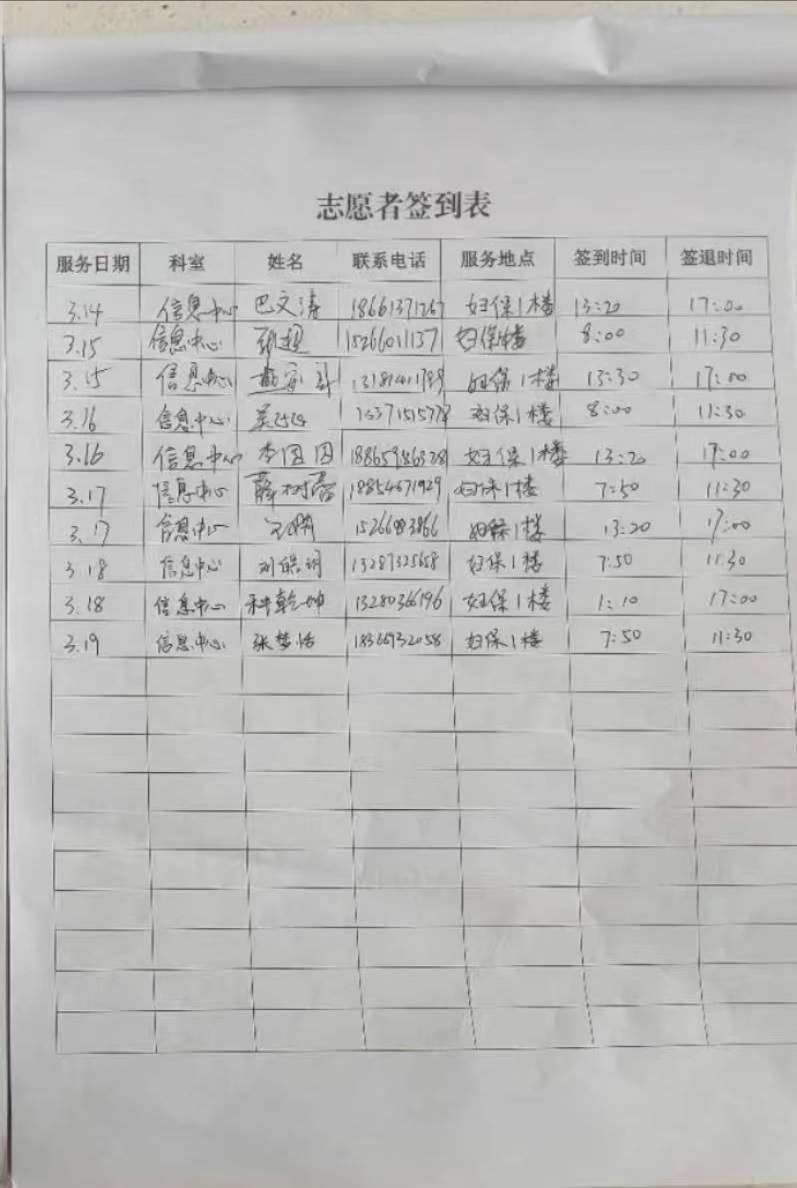 志愿者签到表
服务日期 科室 姓名 联系电话 服务地点 签到时间 签退时间
3.14 信息中心 巴文涛 18661371267 妇保1楼 13:20 17:00
3.15 信息中心 15266011137 妇保1楼 8:00 11:30
3.15 信息中心 妇保1楼 13:30 17:00
3.16 信息中心 妇保1楼 8:00 11:30
3.16 信息中心 李园园 妇保1楼 13:20 17:00
3.17 信息中心 薛树 18854671929 妇保1楼 7:50 11:30
3.17 信息中心 妇保1楼 13:20 17:00
3.18 信息中心 13287325658 妇保1楼 7:50 11:30
3.18 信息中心 乾坤 13280366196 妇保1楼 1:10 17:00
3.19 信息中心 张梦恬 妇保1楼 7:50 11:30